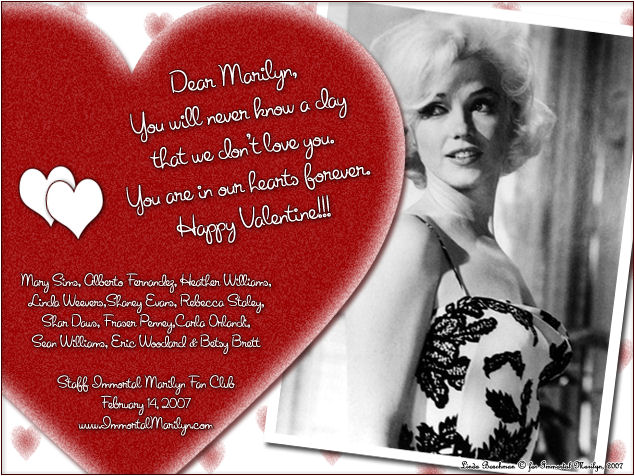 Dear Marilyn,
You will never know a day
that we don't love you.
You are in our hearts forever.
Happy Valentine!!!
Mary Sims, Alberto Fernandez, Heather Williams,
Linda Weevers,Shaney Evans, Rebecca Staley,
Shar Daws, Fraser Penney,Carla Orlandi,
Sean Williams, Eric Woodard & Betsy Brett
Staff Immortal Marilyn Fan Club
February 14, 2007
www.ImmortalMarilyn.com
Linda Boschman © for Immortal Marilyn, 2007